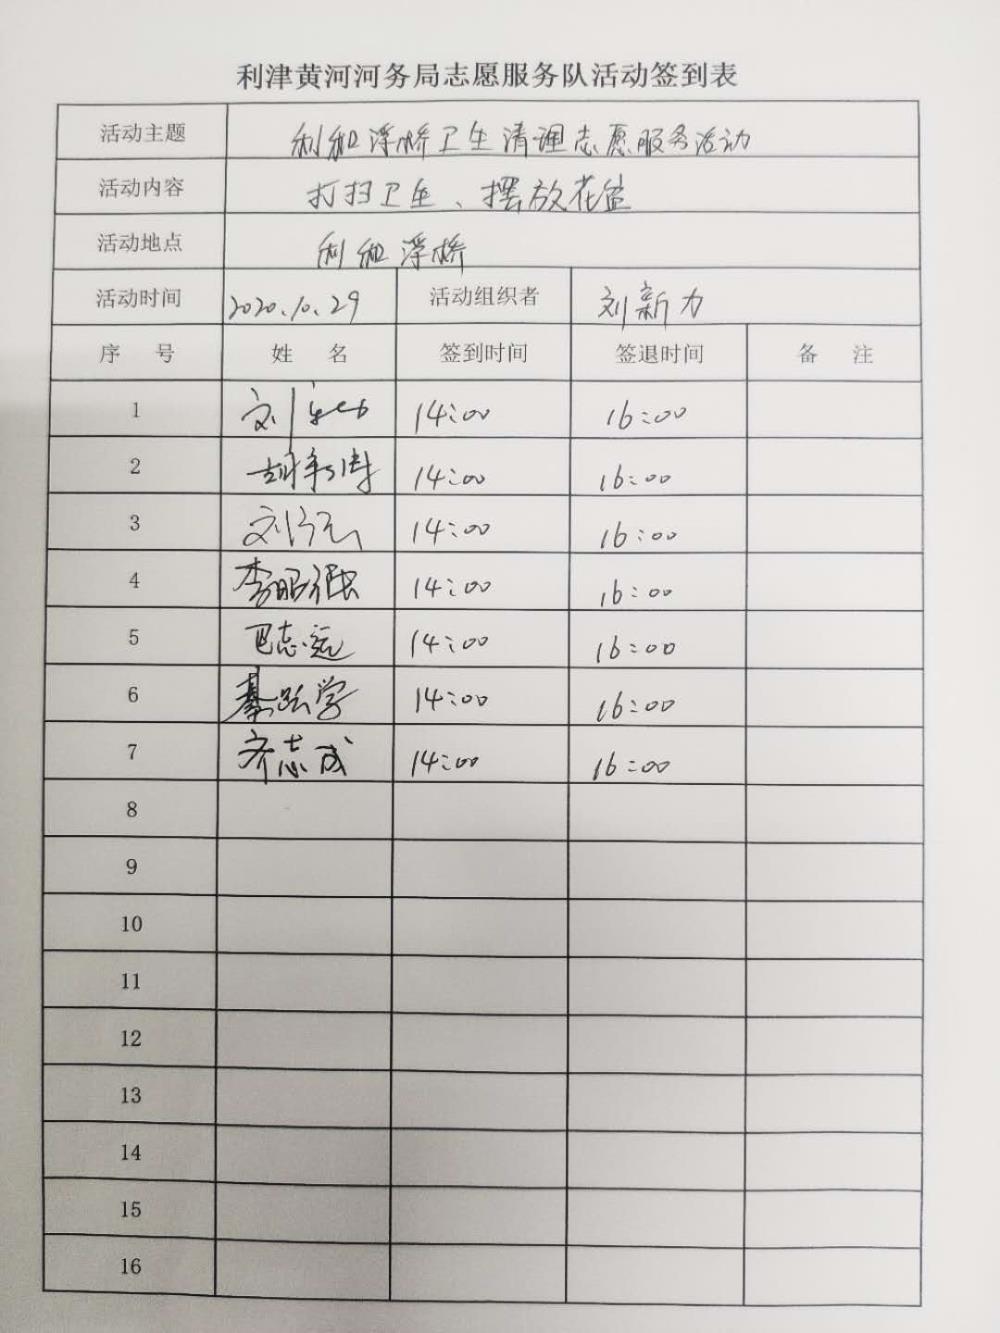 利津黄河河务局志愿服务队活动签到表
活动主题 利和浮桥卫生清理志愿服务活动
活动内容 打扫卫生、摆放花盆
活动地点 利和浮桥
活动时间 2020.10.29 活动组织者 刘新力
序 号 姓 名 签到时间 签退时间 备 注
1 刘 14:00 16:00
2 胡 14:00 16:00
3 刘 14:00 16:00
4 李昭强 14:00 16:00
5 巴志远 14:00 16:00
6 綦跃学 14:00 16:00
7 齐志成 14:00 16:00
8
9
10
11
12
13
14
15
16